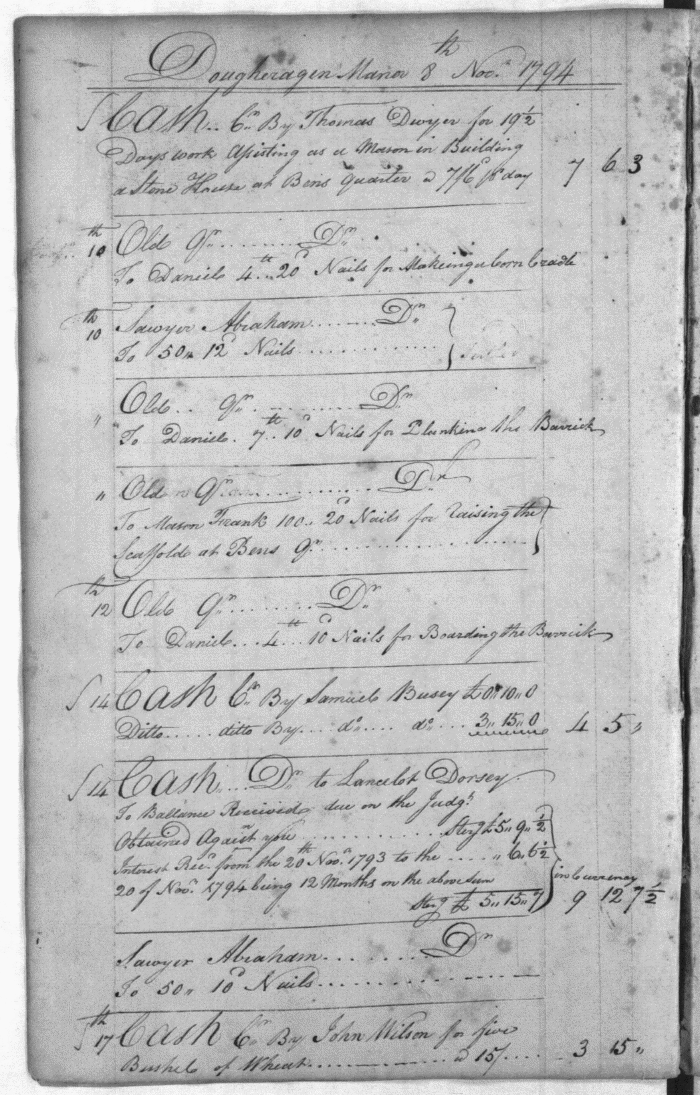 Dougheragen Manor 8th Novr 1794
Cash.. Cr By Thomas Dwyer for 19½
Days work assisting as a Mason in Building
a Stone House at Bens Quarter a 7/6 pr day 7 6 3
10th Old Qr......... Dr
To Daniel 4th.. 20d Nails for Makeing a Corn Cradle
10th Sawyer Abraham...... Dr
To 50,, 12d Nails..........
" Old.. Qr.......... Dr
To Daniel. 7th.. 10d Nails for Plankina the Barrick
" Old Qr............ Dr
To Mason Frank 100.. 20d Nails for raising the
Scaffolds at Bens Qr................
12th Old Qr......... Dr
To Daniel... 4th... 10d Nails for Boarding the Barrick
14 Cash Cr By Samuel Busey £0,,10,,0
Ditto..... ditto By... do.... do... 3,,15,,0 4 5 "
14 Cash... Dr to Lancelot Dorsey
To Ballance Received due on the Judgt
Obtained Against you........... Sterg £5,,9,,½
Interest Recd from the 20th Novr 1793 to the..... ,,6,,6½
20 of Novr 1794 being 12 Months on the above sum
Sterg £ 5,,15,,7 in Currency 9 12 7½
Sawyer Abraham........ Dr
To 50,, 10d Nails..............
17th Cash Cr By John Wilson for five
Bushels of Wheat......... a 15/...... 3 15 "